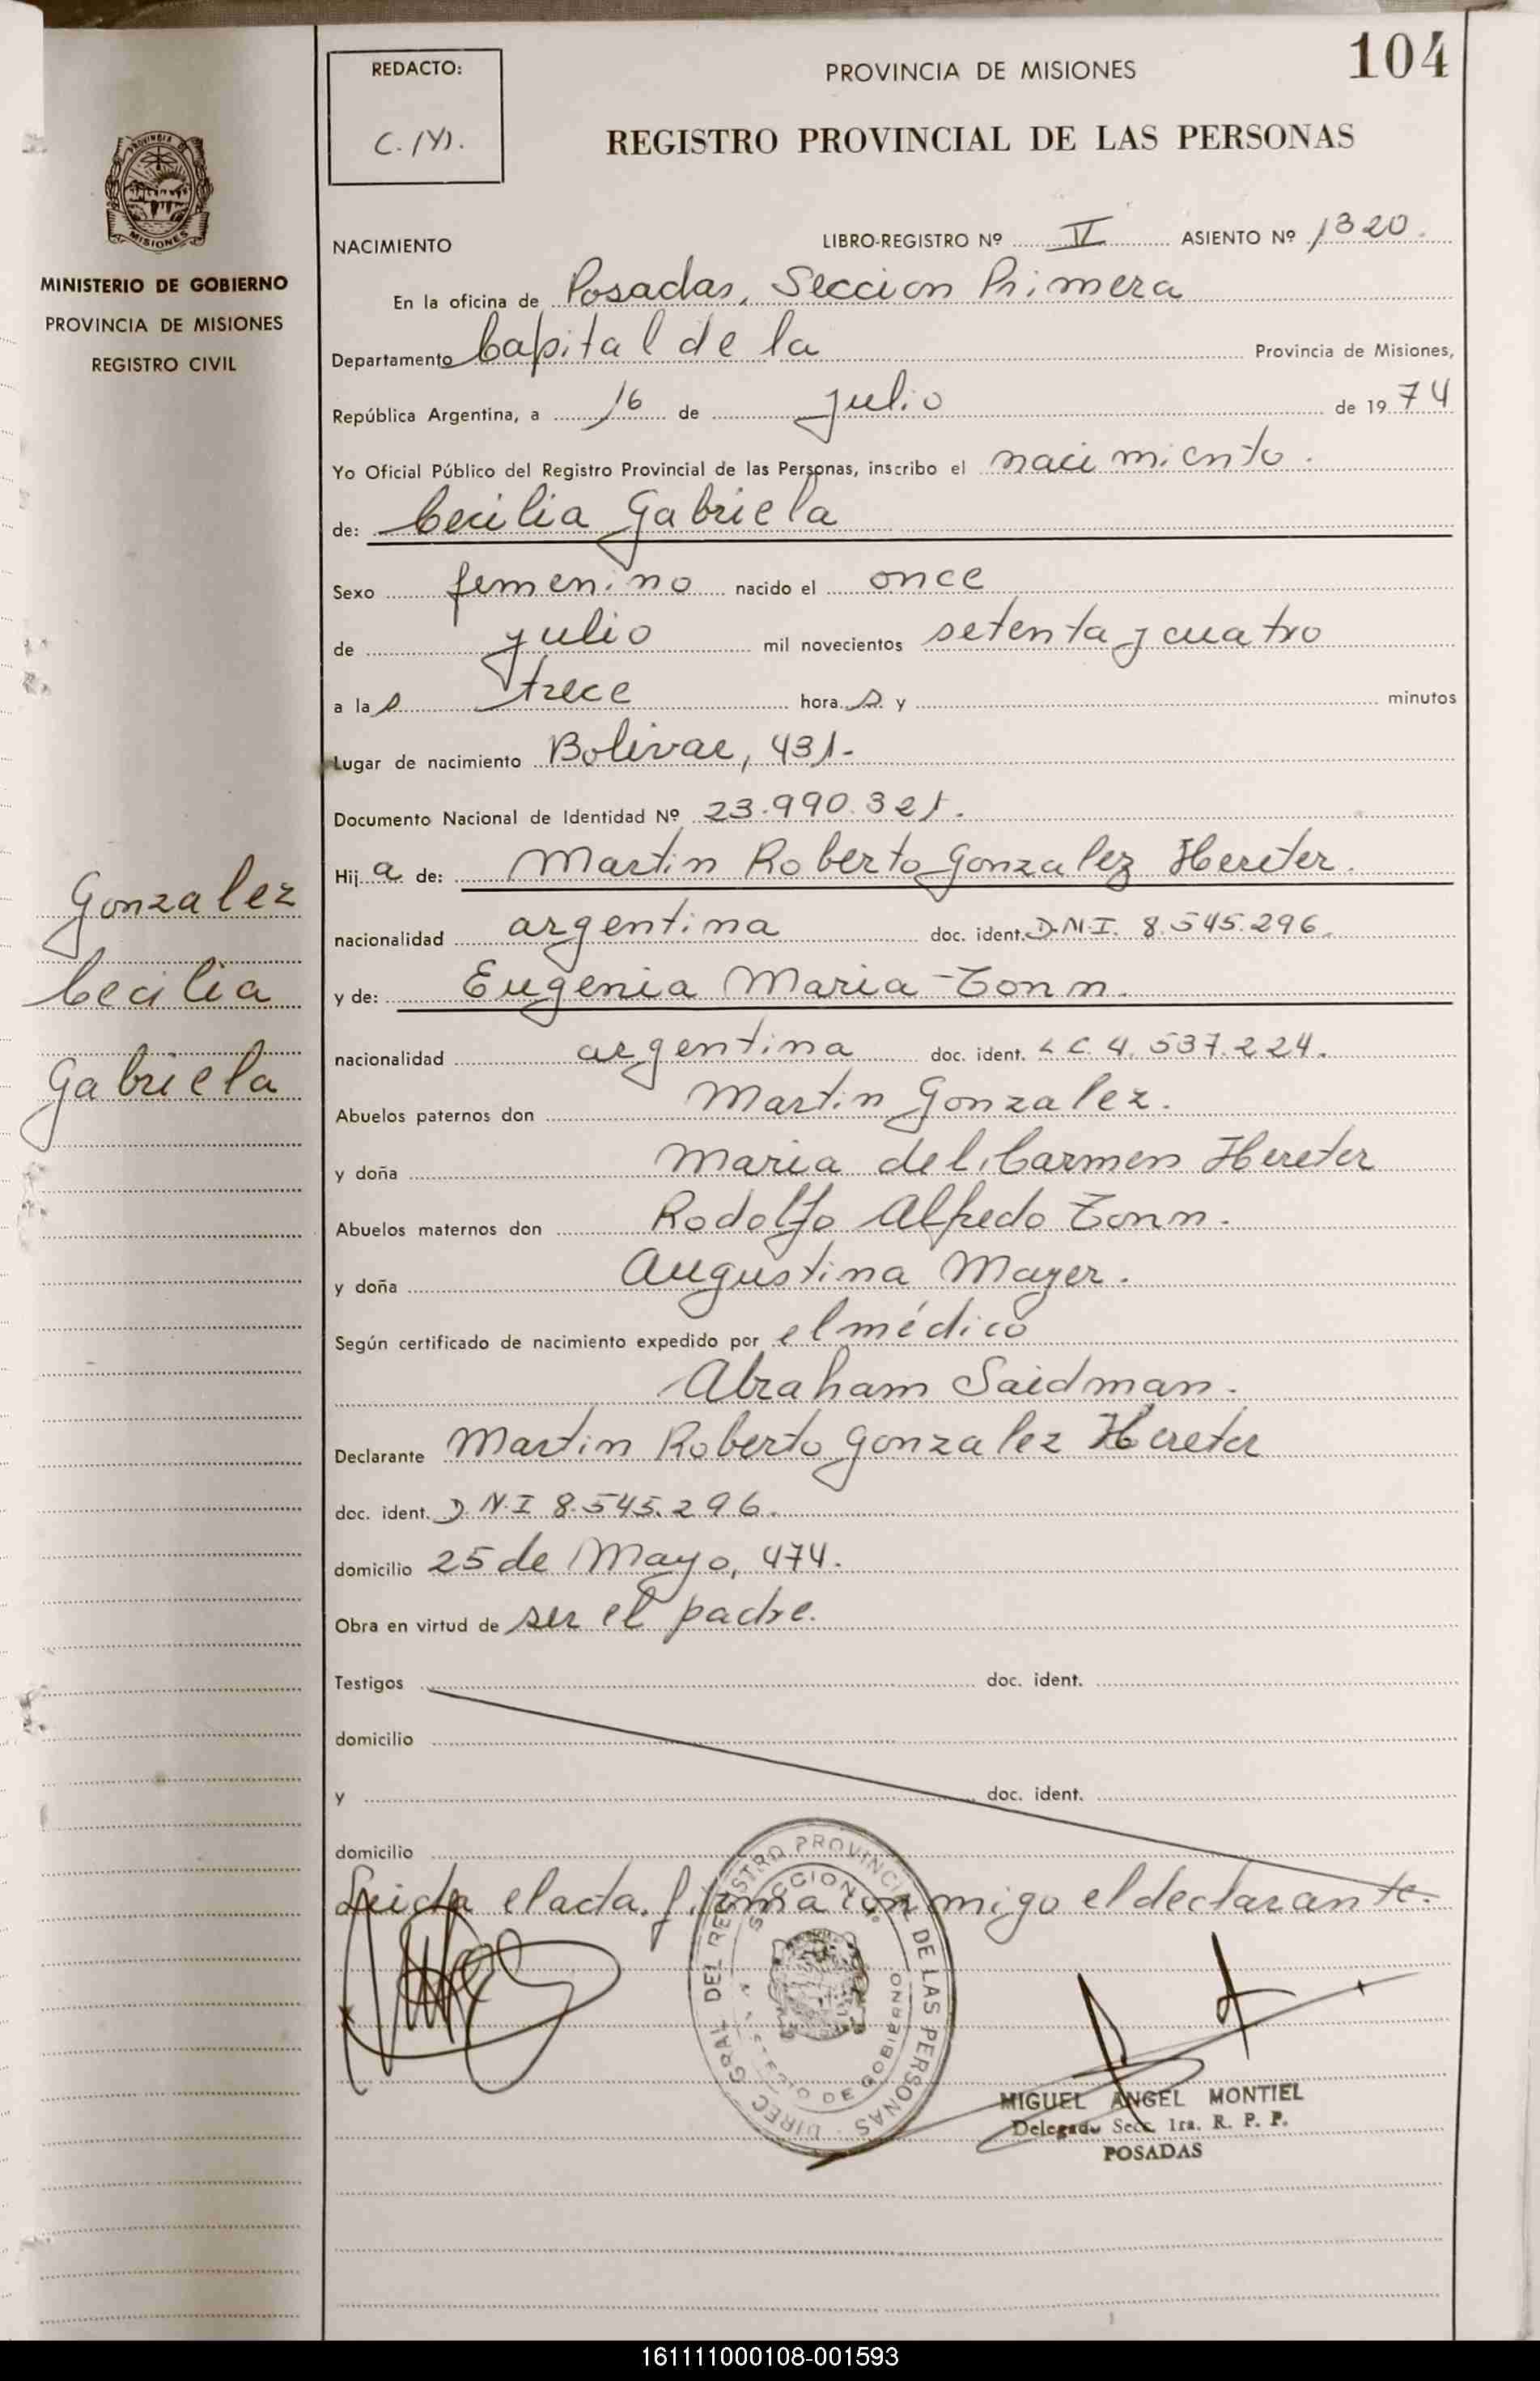 104
REDACTO:
C. M.
PROVINCIA DE MISIONES
REGISTRO PROVINCIAL DE LAS PERSONAS
MISIONES
MINISTERIO DE GOBIERNO
PROVINCIA DE MISIONES
REGISTRO CIVIL
NACIMIENTO LIBRO-REGISTRO Nº IV ASIENTO Nº 1320.
En la oficina de Posadas, Seccion Primera
Departamento Capital de la Provincia de Misiones,
República Argentina, a 16 de julio de 1974
Yo Oficial Público del Registro Provincial de las Personas, inscribo el nacimiento.
de: Cecilia Gabriela
Sexo femenino nacido el once
de julio mil novecientos setenta y cuatro
a la s trece hora s y minutos
Lugar de nacimiento Bolivar, 431-
Documento Nacional de Identidad Nº 23.990.321.
Hij a de: Martin Roberto Gonzalez Hereter.
nacionalidad argentina doc. ident. D.N.I. 8.545.296.
y de: Eugenia Maria Tonn.
nacionalidad argentina doc. ident. L C. 4.537.224.
Abuelos paternos don Martin Gonzalez.
y doña Maria del Carmen Hereter
Abuelos maternos don Rodolfo Alfredo Tonn.
y doña Augustina Mayer.
Según certificado de nacimiento expedido por el médico
Abraham Saidman.
Declarante Martin Roberto Gonzalez Hereter
doc. ident. D.N.I 8.545.296.
domicilio 25 de Mayo, 474.
Obra en virtud de ser el padre.
Testigos doc. ident.
domicilio
y doc. ident.
domicilio
Leida el acta. firma conmigo el declarante.
Gonzalez
Cecilia
Gabriela
DIREC. GRAL. DEL REGISTRO PROVINCIAL DE LAS PERSONAS
SECCION 1º
MINISTERIO DE GOBIERNO
MIGUEL ANGEL MONTIEL
Delegado Secc. 1ra. R. P. P.
POSADAS
161111000108-001593